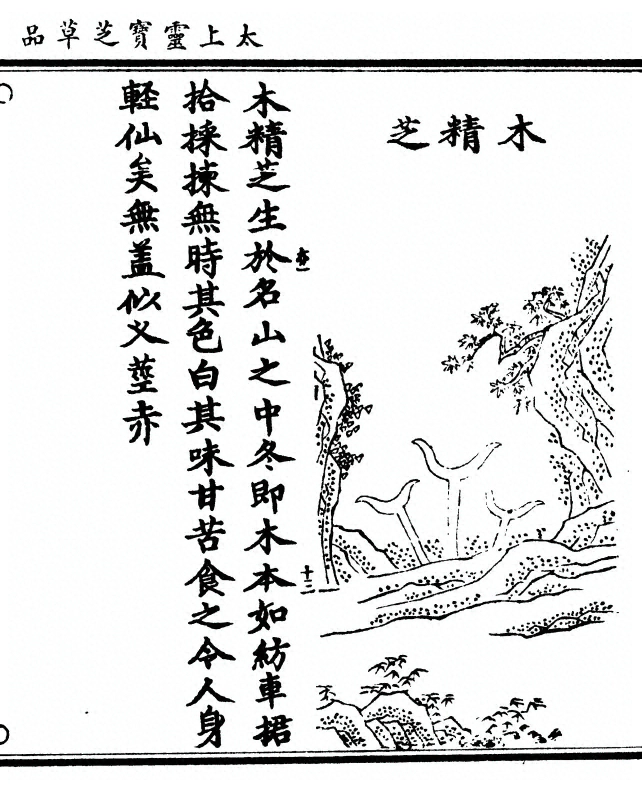 太上靈寶芝草品
木精芝
亦一
十二
木精芝生於名山之中冬即木本如紡車捃
拾採揀無時其色白其味甘苦食之令人身
軽仙矣無盖似义莖赤